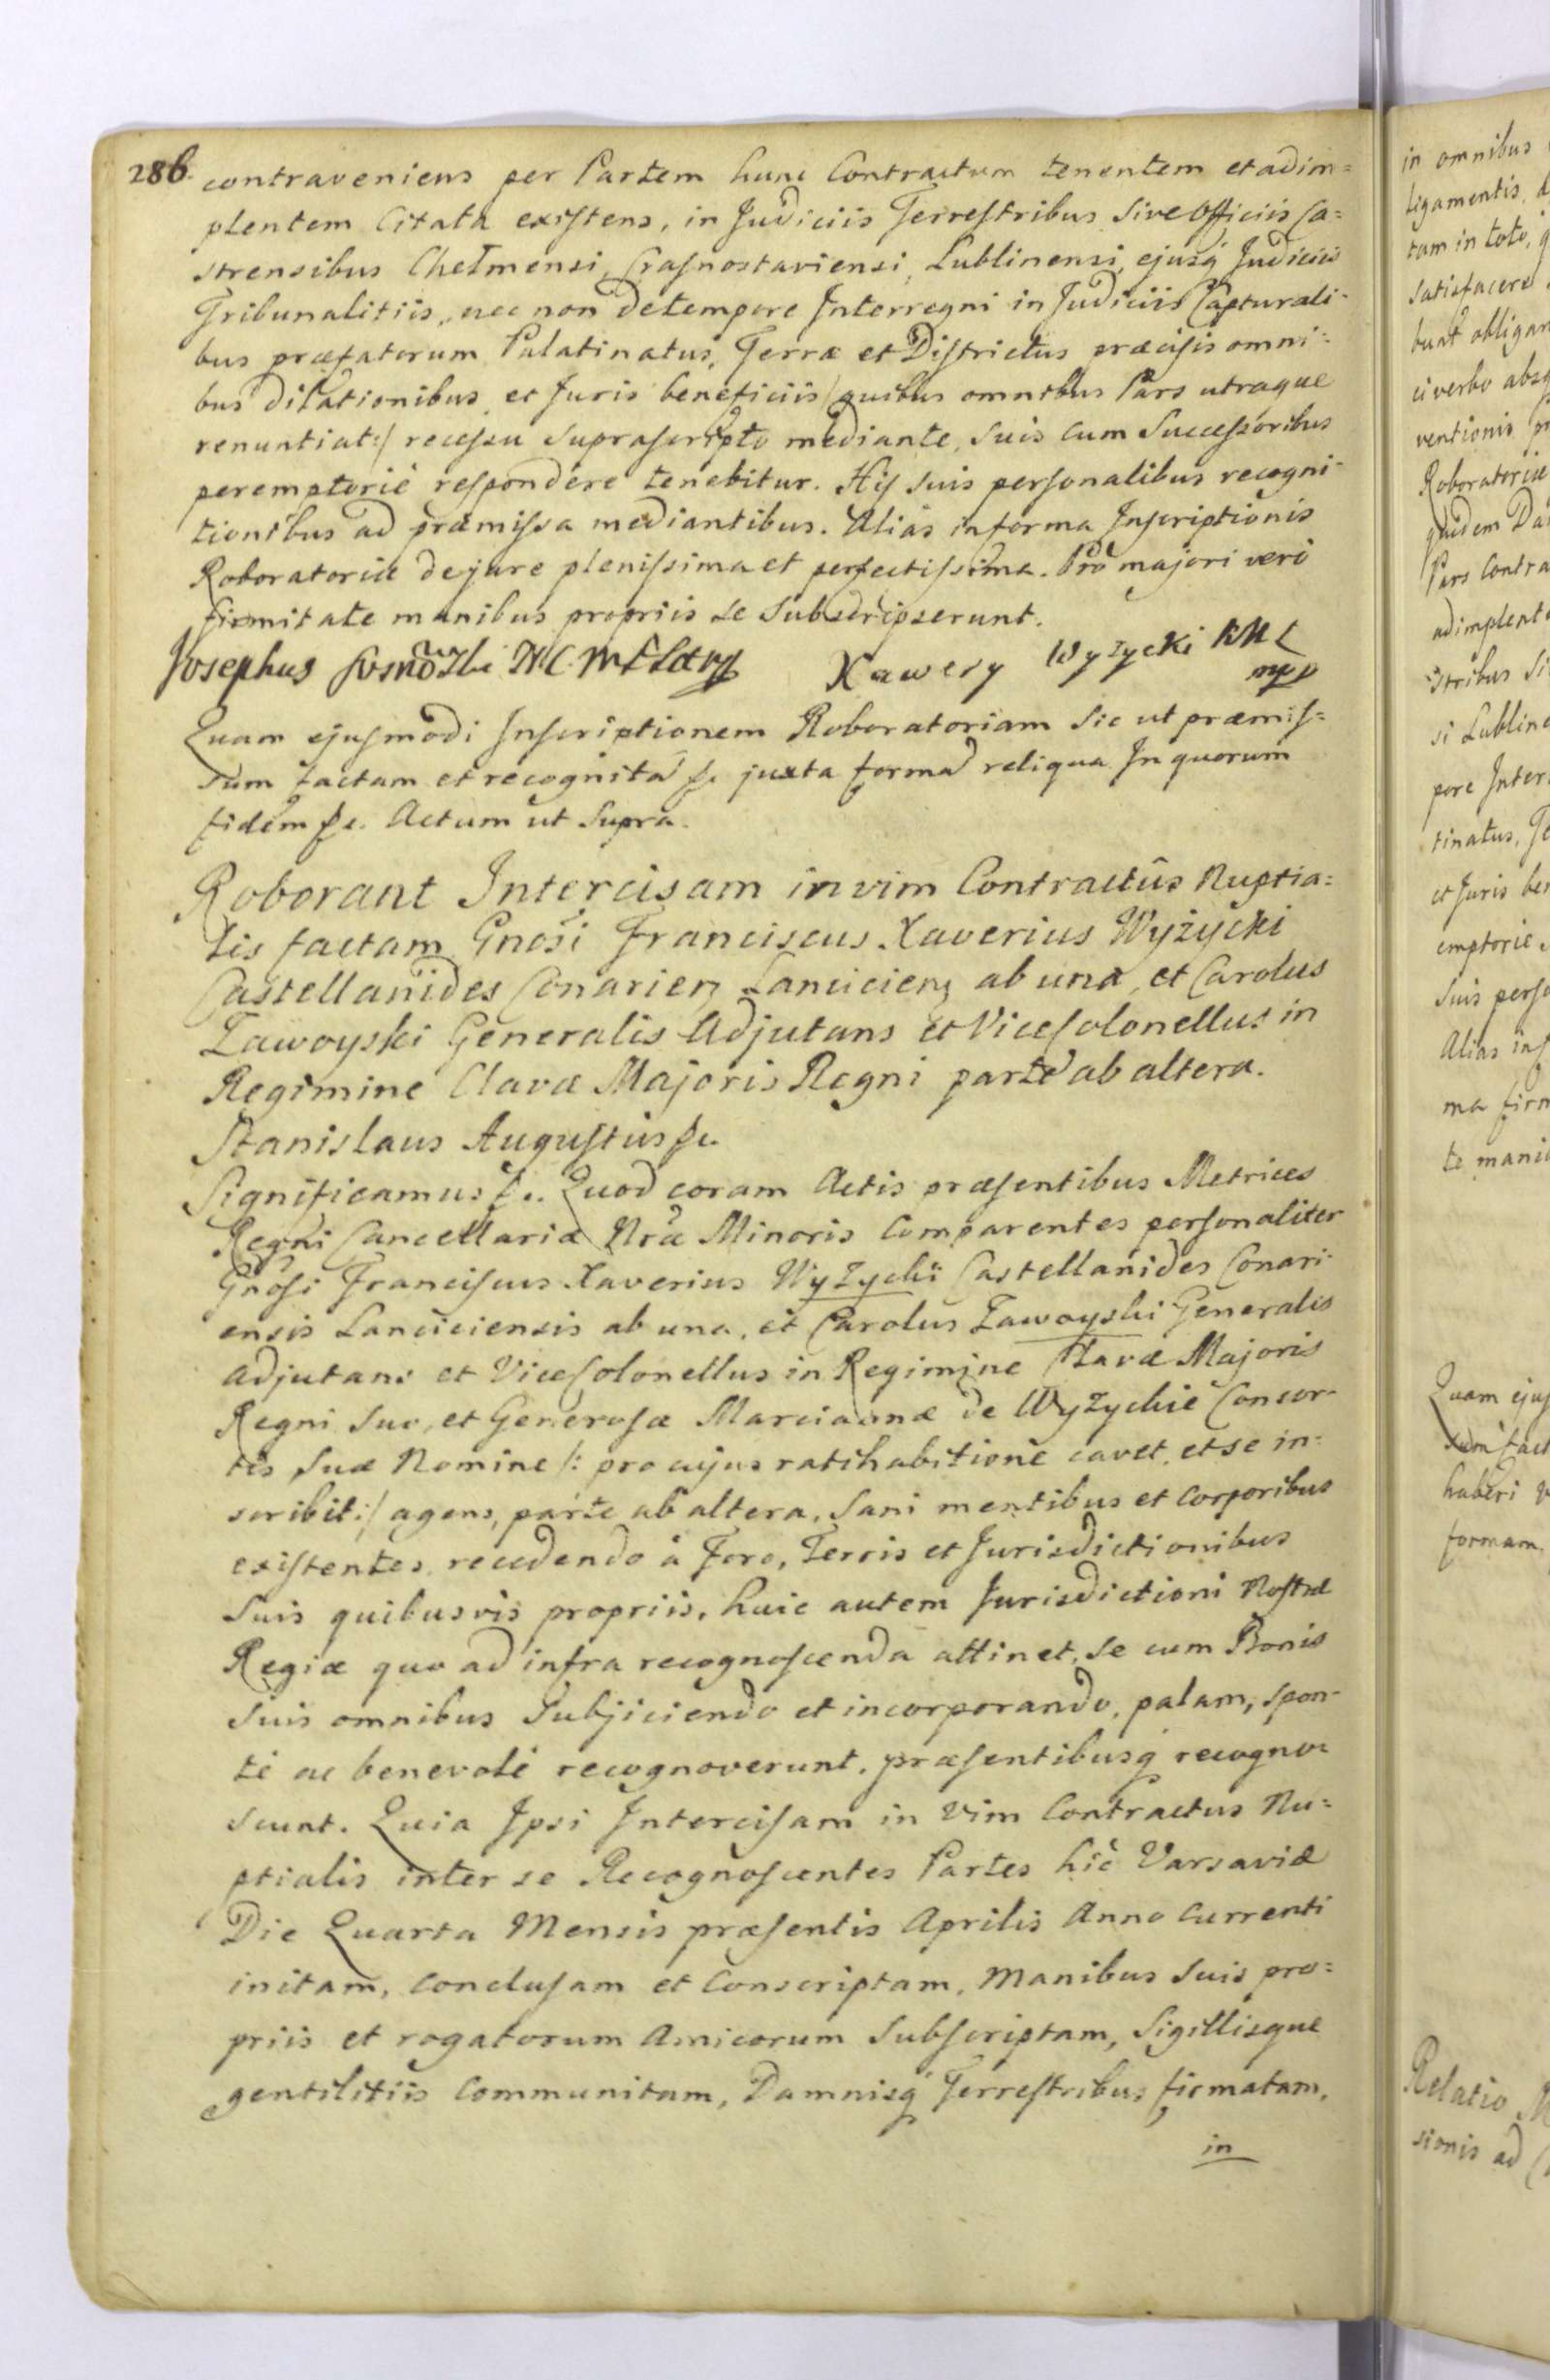 286.
contraveniens per Partem hunc Contractum tenentem et adim=
plentem Citata existens, in Judiciis Terrestribus sive Officiis Ca=
strensibus Chelmensi, Crasnostaviensi, Lublinensi, ejusq̃ Judiciis
Tribunalitiis, nec non de tempore Interregni in Judiciis Capturali=
bus præfatorum Palatinatus, Terræ et Districtus præcisis omni=
bus dilationibus et Juris beneficiis /quibus omnibus Pars utraque
renuntiat:/ recessu suprascripto mediante, suis cum Successoribus
peremptoriè respondere tenebitur. His suis personalibus recogni=
tionibus ad præmissa mediantibus. Aliàs in forma Inscriptionis
Roboratoriæ de jure plenissima et perfectissima. Prò majori verò
firmitate manibus propriis se subscripserunt.
Josephus
Xawery Wyzycki
mpp
Quam ejusmodi Inscriptionem Roboratoriam sic ut præmis=
sum factam et recognitã &c. juxta formã reliqua In quorum
fidem &c. Actum ut supra.
Roborant Intercisam in vim Contractûs Nuptia=
lis factam Gnõsi Franciscus Xaverius Wyżycki
Castellanides Conarien Lancicien ab una, et Carolus
Zawoyski Generalis Adjutans et ViceColonellus in
Regimine Clavæ Majoris Regni parte ab altera.
Stanislaus Augustus &c.
Significamus &c. Quod coram Actis præsentibus Metrices
Regni Cancellariæ Nrã Minoris Comparentes personaliter
Gnõsi Franciscus Xaverius Wyżycki Castellanides Conari=
ensis Lanciciensis ab una, et Carolus Zawoyski Generalis
Adjutans et ViceColonellus in Regimine Clavæ Majoris
Regni suo, et Generosæ Marciannæ de Wyżyckie Consor=
tis suæ Nomine /: pro cujus ratihabitione cavet, et se in=
scribit:/ agens, parte ab altera, sani mentibus et corporibus
existentes, recedendo à Foro, Terris et Jurisdictionibus
suis quibusvis propriis, huic autem Jurisdictioni Nostræ
Regiæ quo ad infra recognoscenda attinet, se cum Bonis
suis omnibus subjiciendo et incorporando, palam, spon=
te ac benevolè recognoverunt, præsentibusq̃ recogno=
scunt. Quia Ipsi Intercisam in vim Contractus Nu=
ptialis inter se Recognoscentes Partes hic Varsaviæ
Die Quarta Mensis præsentis Aprilis Anno Currenti
initam, conclusam et Conscriptam, Manibus suis pro=
priis et rogatorum Amicorum subscriptam, Sigillisque
gentilitiis communitam, Damnisq̃ Terrestribus firmatam,
in
in omnibus
ligamentis,
tam in toto,
satisfacere
ci verbo
ventionis
Roboratoriæ
quidem
Pars Contra
adimplent
stribus si
si Lublin
pore Inter
tinatus, Te
et Juris be
emptorie
suis perso
Alias in
ma firm
te mani
Quam ejus
haberi
formam
Relatio M
sionis ad